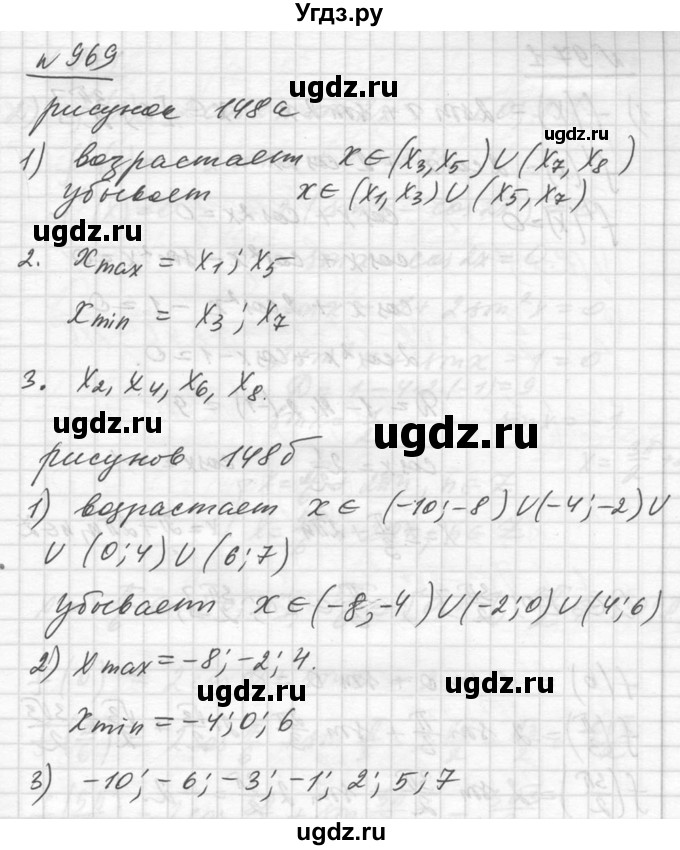 Угдз.ру
N 969
ugdz.ru
рисунок 148а
ugdz.ru
1) возрастает x∈(x3, x5)∪(x7, x8)
убывает x∈(x1, x3)∪(x5, x7)
ugdz.ru
ugdz.ru
2. xmax = x1; x5
xmin = x3; x7
3. x2, x4, x6, x8.
ugdz.ru
ugdz.ru
рисунов 148б
1) возрастает x∈ (-10;-8)∪(-4;-2)∪
∪ (0;4)∪(6;7)
ugdz.ru
ugdz.ru
убывает x∈(-8;-4)∪(-2;0)∪(4;6)
2) xmax = -8; -2; 4.
ugdz.ru
ugdz.ru
xmin = -4; 0; 6
3) -10; -6; -3; -1; 2; 5; 7
ugdz.ru
ugdz.ru